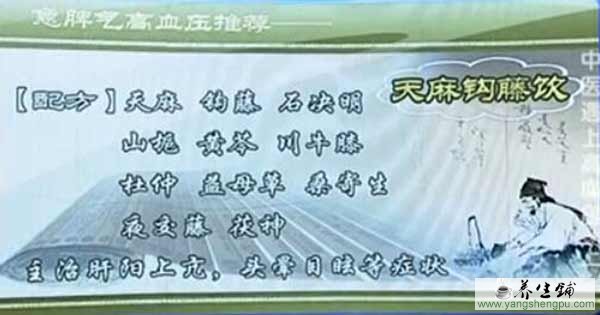 意脾气高血压推荐——
天麻钩藤饮
【配方】天麻 钩藤 石决明
山栀 黄芩 川牛膝
杜仲 益母草 桑寄生
夜交藤 茯神
主治肝阳上亢，头晕目眩等症状
中医遇上
养生铺
www.yangshengpu.com